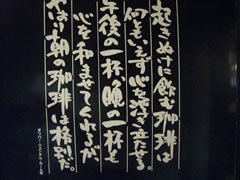 起きぬけに飲む珈琲は
何ともいえず心を浮き立たせる。
午後の一杯、晩の一杯も
心を和ませてくれるが
やはり朝の珈琲は格别だ。